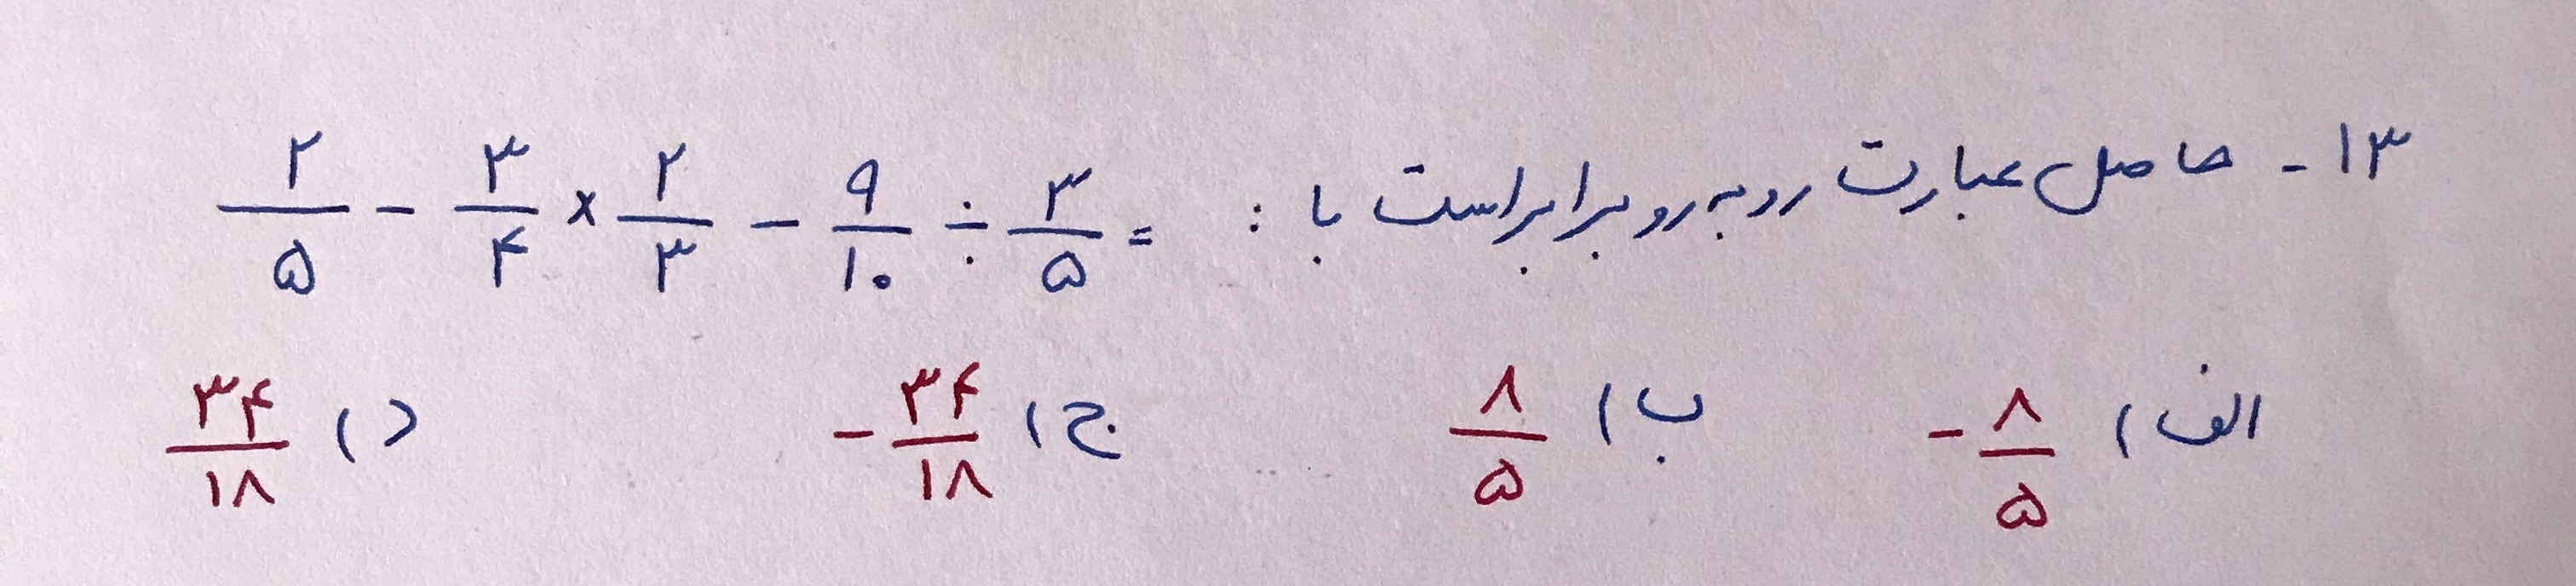 ۱۳- حاصل عبارت رو به رو برابر است با : ۲/۵ - ۳/۴ × ۲/۳ - ۹/۱۰ ÷ ۳/۵ =
الف) -۸/۵ ب) ۸/۵ ج) -۳۴/۱۸ د) ۳۴/۱۸